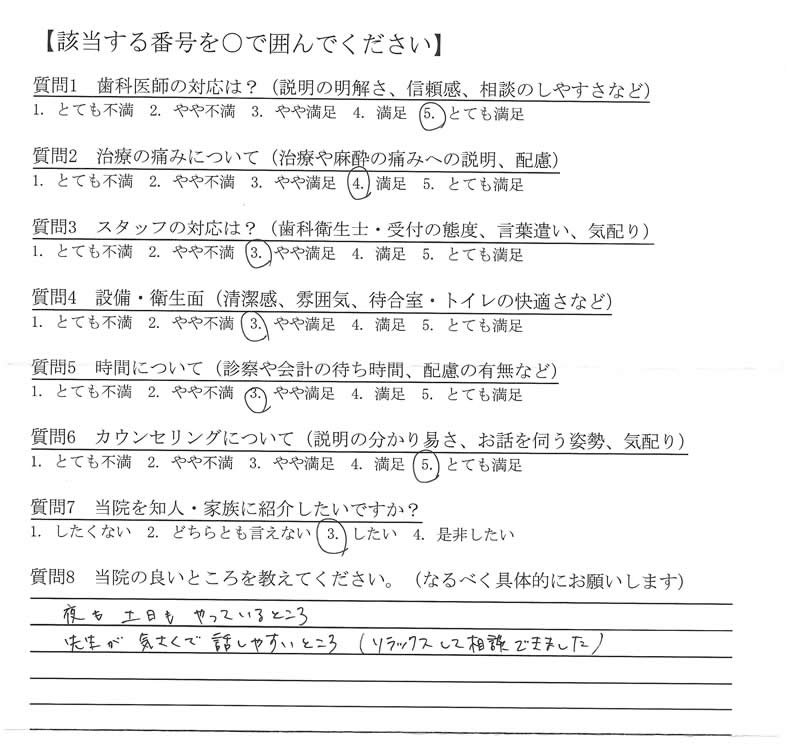 【該当する番号を○で囲んでください】
質問1 歯科医師の対応は？（説明の明解さ、信頼感、相談のしやすさなど）
1. とても不満 2. やや不満 3. やや満足 4. 満足 5. とても満足
質問2 治療の痛みについて（治療や麻酔の痛みへの説明、配慮）
1. とても不満 2. やや不満 3. やや満足 4. 満足 5. とても満足
質問3 スタッフの対応は？（歯科衛生士・受付の態度、言葉遣い、気配り）
1. とても不満 2. やや不満 3. やや満足 4. 満足 5. とても満足
質問4 設備・衛生面（清潔感、雰囲気、待合室・トイレの快適さなど）
1. とても不満 2. やや不満 3. やや満足 4. 満足 5. とても満足
質問5 時間について（診察や会計の待ち時間、配慮の有無など）
1. とても不満 2. やや不満 3. やや満足 4. 満足 5. とても満足
質問6 カウンセリングについて（説明の分かり易さ、お話を伺う姿勢、気配り）
1. とても不満 2. やや不満 3. やや満足 4. 満足 5. とても満足
質問7 当院を知人・家族に紹介したいですか？
1. したくない 2. どちらとも言えない 3. したい 4. 是非したい
質問8 当院の良いところを教えてください。（なるべく具体的にお願いします）
夜も 土日も やっているところ
先生が 気さくで 話しやすいところ （リラックスして相談できました）